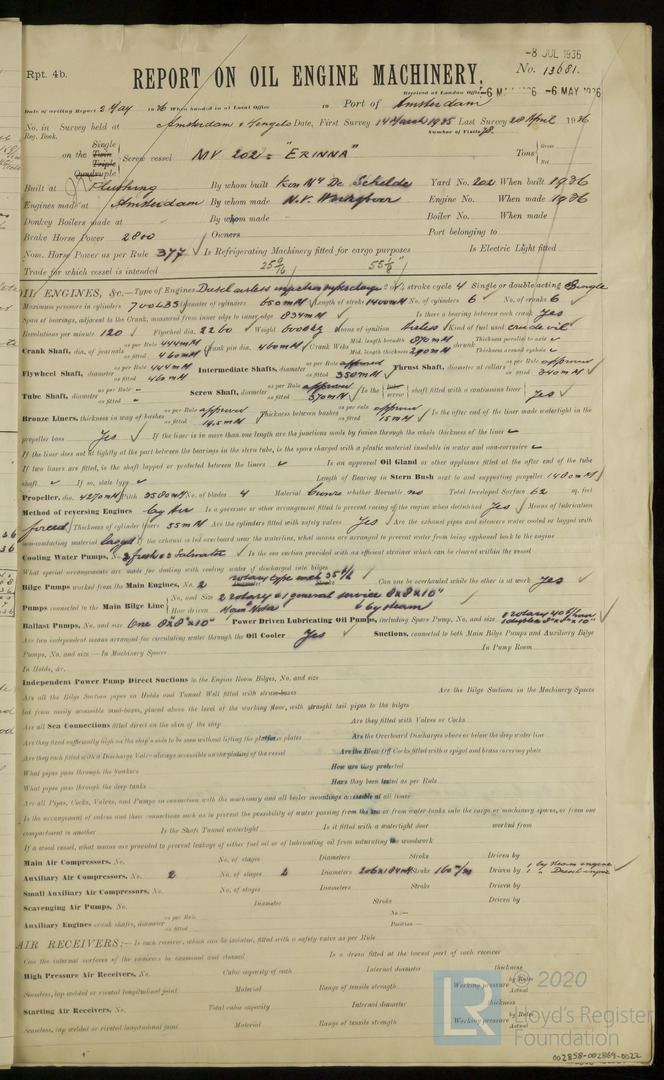 -8 JUL 1936
Rpt. 4b.
No. 13681.
REPORT ON OIL ENGINE MACHINERY.
Received at London Office -6 MAY 1936
Date of writing Report 2 May 1936 When handed in at Local Office 19 Port of Amsterdam
No. in Survey held at Amsterdam & Hengelo Date, First Survey 14 March 1935 Last Survey 20 April 1936
Reg. Book. Number of Visits 78
on the Single Twin Triple Quadruple Screw vessel MV 202 = "ERINNA" Tons Gross Net
Built at Flushing By whom built Kon. My. De Schelde Yard No. 202 When built 1936
Engines made at Amsterdam By whom made N.V. Werkspoor Engine No. When made 1936
Donkey Boilers made at - By whom made - Boiler No. When made
Brake Horse Power 2800 Owners Port belonging to
Nom. Horse Power as per Rule 377 Is Refrigerating Machinery fitted for cargo purposes Is Electric Light fitted
Trade for which vessel is intended 25 9/16 55 1/8
OIL ENGINES, &c.—Type of Engines Diesel airless injection supercharge 2 or 4 stroke cycle 4 Single or double acting Single
Maximum pressure in cylinders 700 LBS Diameter of cylinders 650 mM Length of stroke 1400 mM No. of cylinders 6 No. of cranks 6
Span of bearings, adjacent to the Crank, measured from inner edge to inner edge 834 mM Is there a bearing between each crank Yes
Revolutions per minute 120 Flywheel dia. 2260 Weight 6000 kg Means of ignition airless Kind of fuel used crude oil
Crank Shaft, dia. of journals as per Rule 444 mM as fitted 460 mM Crank pin dia. 460 mM Crank Webs Mid. length breadth 870 mM Mid. length thickness 290 mM shrunk Thickness parallel to axis Thickness around eyehole
Flywheel Shaft, diameter as per Rule 444 mM as fitted 460 mM Intermediate Shafts, diameter as per Rule approved as fitted 350 mM Thrust Shaft, diameter at collars as per Rule approved as fitted 340 mM
Tube Shaft, diameter as per Rule - as fitted - Screw Shaft, diameter as per Rule approved as fitted 370 mM Is the tube screw shaft fitted with a continuous liner Yes
Bronze Liners, thickness in way of bushes as per Rule approved as fitted 19.5 mM Thickness between bushes as per rule approved as fitted 15 mM Is the after end of the liner made watertight in the
propeller boss Yes If the liner is in more than one length are the junctions made by fusion through the whole thickness of the liner
If the liner does not fit tightly at the part between the bearings in the stern tube, is the space charged with a plastic material insoluble in water and non-corrosive
If two liners are fitted, is the shaft lapped or protected between the liners Is an approved Oil Gland or other appliance fitted at the after end of the tube
shaft If so, state type Length of Bearing in Stern Bush next to and supporting propeller 1480 mM
Propeller, dia. 4270 mM Pitch 3580 mM No. of blades 4 Material bronze whether Moveable no Total Developed Surface 62 sq. feet
Method of reversing Engines by air Is a governor or other arrangement fitted to prevent racing of the engine when declutched Yes Means of lubrication
forced Thickness of cylinder liners 55 mM Are the cylinders fitted with safety valves Yes Are the exhaust pipes and silencers water cooled or lagged with
non-conducting material lagged If the exhaust is led overboard near the waterline, what means are arranged to prevent water from being syphoned back to the engine
Cooling Water Pumps, No. 2 fresh & 3 Saltwater Is the sea suction provided with an efficient strainer which can be cleared within the vessel
What special arrangements are made for dealing with cooling water if discharged into bilges
Bilge Pumps worked from the Main Engines, No. 2 rotary type each 35 t/h Diameter Stroke Can one be overhauled while the other is at work Yes
Pumps connected to the Main Bilge Line No. and Size 2 rotary & 1 general service 8x8x10" How driven Main Motor & by steam
Ballast Pumps, No. and size One 8"x8"x10" Power Driven Lubricating Oil Pumps, including Spare Pump, No. and size 2 rotary 40 t/hour 1 duplex 8"x8"x10"
Are two independent means arranged for circulating water through the Oil Cooler Yes Suctions, connected to both Main Bilge Pumps and Auxiliary Bilge
Pumps, No. and size—In Machinery Spaces In Pump Room
In Holds, &c.
Independent Power Pump Direct Suctions to the Engine Room Bilges, No. and size
Are all the Bilge Suction pipes in Holds and Tunnel Well fitted with strum-boxes Are the Bilge Suctions in the Machinery Spaces
led from easily accessible mud-boxes, placed above the level of the working floor, with straight tail pipes to the bilges
Are all Sea Connections fitted direct on the skin of the ship Are they fitted with Valves or Cocks
Are they fixed sufficiently high on the ship's side to be seen without lifting the platform plates Are the Overboard Discharges above or below the deep water line
Are they each fitted with a Discharge Valve always accessible on the plating of the vessel Are the Blow Off Cocks fitted with a spigot and brass covering plate
What pipes pass through the bunkers How are they protected
What pipes pass through the deep tanks Have they been tested as per Rule
Are all Pipes, Cocks, Valves, and Pumps in connection with the machinery and all boiler mountings accessible at all times
Is the arrangement of valves and their connections such as to prevent the possibility of water passing from the sea or from water-tanks into the cargo or machinery spaces, or from one
compartment to another Is the Shaft Tunnel watertight Is it fitted with a watertight door worked from
If a wood vessel, what means are provided to prevent leakage of either fuel oil or lubricating oil from saturating the woodwork
Main Air Compressors, No. No. of stages Diameters Stroke Driven by
Auxiliary Air Compressors, No. 2 No. of stages 2 Diameters 206 x 184 mM Stroke 160 m/m Driven by 1 by steam engine 1 " Diesel engine
Small Auxiliary Air Compressors, No. No. of stages Diameters Stroke Driven by
Scavenging Air Pumps, No. Diameter Stroke Driven by
Auxiliary Engines crank shafts, diameter as per Rule as fitted No. Position
AIR RECEIVERS:—Is each receiver, which can be isolated, fitted with a safety valve as per Rule
Can the internal surfaces of the receivers be examined and cleaned Is a drain fitted at the lowest part of each receiver
High Pressure Air Receivers, No. Cubic capacity of each Internal diameter thickness
Seamless, lap welded or riveted longitudinal joint Material Range of tensile strength Working pressure by Rules Actual
Starting Air Receivers, No. Total cubic capacity Internal diameter thickness
Seamless, lap welded or riveted longitudinal joint Material Range of tensile strength Working pressure by Rules Actual
© 2020
Lloyd's Register
Foundation
002858-002869-0022